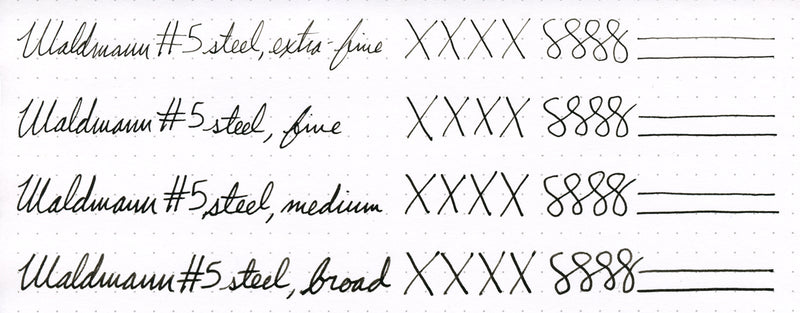 Waldmann #5 steel, extra-fine XXXX 8888
Waldmann #5 steel, fine XXXX 8888
Waldmann #5 steel, medium XXXX 8888
Waldmann #5 steel, broad XXXX 8888